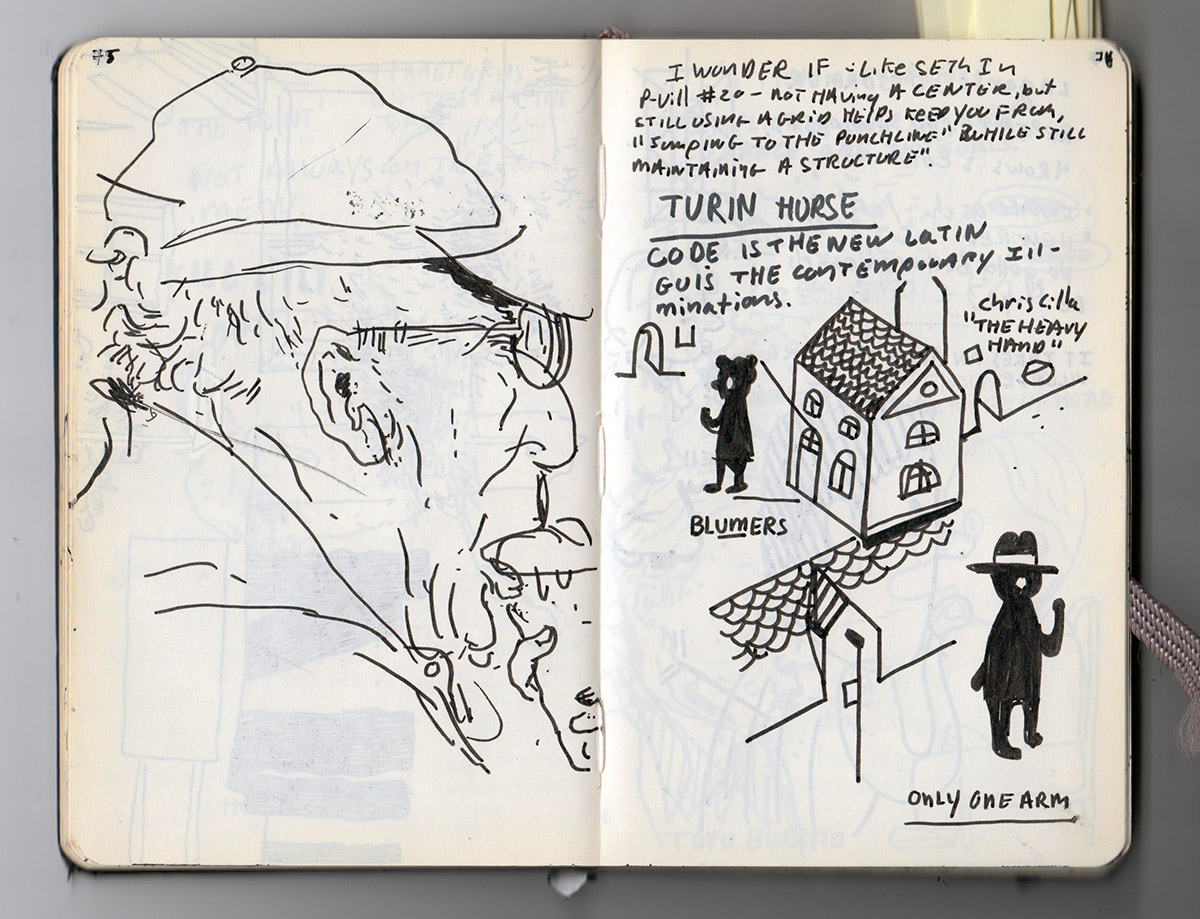 75
76
I WONDER IF - LIKE SETH IN
P-VILL #20 - NOT HAVING A CENTER, but
STILL USING A GRID HELPS KEEP YOU FROM,
"JUMPING TO THE PUNCHLINE" BWHILE STILL
MAINTAINING A STRUCTURE".
TURIN HORSE
CODE IS THE NEW LATIN
GUIS THE CONTEMPORARY Ill-
minations.
chris Cilla
"THE HEAVY
HAND"
BLUMERS
ONLY ONE ARM
NOT ALWAYS ON THE
4 ROWS
TOFU BURRITO